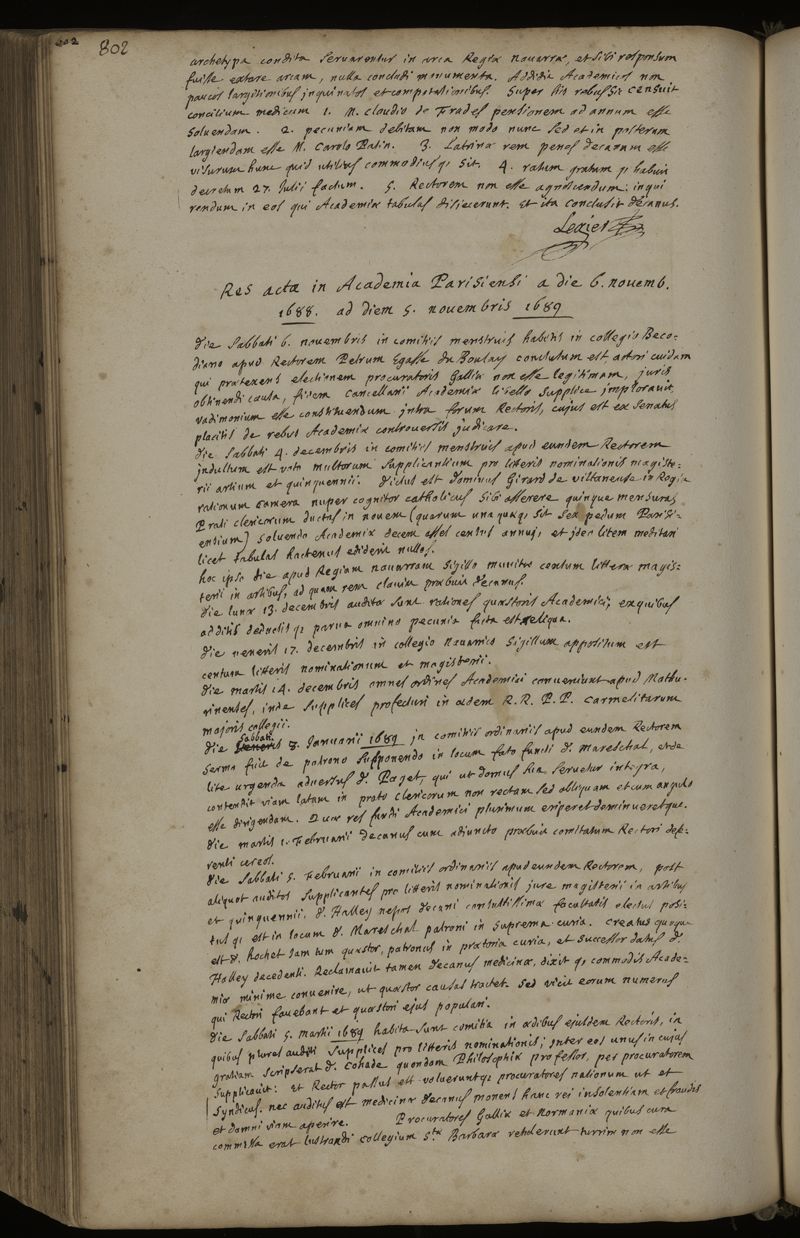 802 802
archetypa condita servarentur in arca Regiæ navarræ, et sibi responsum
fuisse extare arcam, nulla concludi monumenta. Addidit Academicos non
paucos largitionibus inquinatos et compotationibus. super his rebus sic censuit
concilium medicum 1. M. claudio de Frades pensionem ad annum esse
soluendam. 2. pecuniam debitam non modo nunc sed et in posterum
largiendam esse M. Carolo Patin. 3. Latrinæ rem penes decanum esse
visurum hunc quid utilius commodiusq; sit. 4. ratum gratum q; habuit
decretum 27. Iulii factum. 5. Rectorem non esse agnoscendum: inqui
rendum in eos qui Academiæ tabulas disiecerunt. et ita conclusit decanus.
Res acta in Academia Parisiensi a die 6. novemb.
1688. ad diem 5. novembris 1689
die sabbati 6. novembris in comitiis menstruis habitis in collegio Beco-
diano apud Rectorem Petrum Egasse du Boulay conclusum est actori cuidam
qui prætexens electionem procuratoris Galliæ non esse legitimam, juris
obtinendi causa, fidem Cancellarii Academiæ libello supplice imploravit,
vadimonium esse constituendum intra forum Rectoris, cujus est ex senatus
placitis de rebus Academiæ controversis judicare.
die sabbati 4. decembris in comitiis menstruis apud eundem Rectorem
indultum est voto multorum supplicantium pro litteris nominationis magiste-
rii artium et quinquennii. dictus est dominus Girard de villaneuse in Regia
rationum camera nuper cognitor catholicus sibi asserere quinque mensuras
Prati clericorum ductas in novem (quarum unaquæq; sit sex pedum Parisi-
ensium) solvendo Academiæ decem asses census annui, et ideo litem meditari
licet tabulas hactenus ediderit nullas.
hoc ipso die apud Regiam navarram sigillo munitæ centum litteræ magis-
terii in artibus, ad quam rem clavim præbuit decanus.
die lunæ 13. decembris auditæ sunt rationes quæstoris Academici; ex quibus
additis deductisq; parva omnino pecunia facta est reliqua.
die veneris 17. decembris in collegio navarrico sigillum appositum est
centum litteris nominationum et magisterii.
die martis 14. decembris omnes ordines Academici conveniunt apud Mathu-
rinenses, inde supplices profecturi in ædem R.R. P.P. carmelitarum
majoris collegii.
die sabbati 8. Ianuarii 1689 in comitiis ordinariis apud eundem Rectorem
sermo fuit de patrono supponendo in locum fato functi d. Mareschal, et de
lite urgenda adversus d. Paget, qui ut domus sua servetur integra,
contendit viam latam in prato clericorum non rectam sed obliquam et cum angulo
esse dirigendam. Quæ res fundi Academici plurimum eriperet demineretque.
die martis 1. Februarii decanus cum adiuncto præbuit comitatum Rectori defe-
renti cereos.
die sabbati 5. Februarii in comitiis ordinariis apud eundem Rectorem, post
aliquot auditos supplicantes pro litteris nominationis jure magisterii in artibus
et quinquennii, d. Halley nepos decani consultissimæ facultatis electus posi-
tus q; est in locum d. Mareschal patroni in suprema curia. creatus quoque
est d. Rochet iam tum quæstor, patronus in prætoria curia, et successor datus d.
Halley decedenti. Reclamavit tamen decanus medicinæ, dixit q; commodis Acade-
miæ minime convenire, ut quæstor causas tractet. sed vicit eorum numerus
qui Rectori favebant et quæstori ejus populari.
die sabbati 5. martii 1689 habita sunt comitia in ædibus ejusdem Rectoris, in
quibus plures auditi supplices pro litteris nominationis; inter eos unus in cujus
gratiam scripserat d. Cohade quondam Philosophiæ professor, per procuratorem
supplicavit: et Rector passus est volueruntq; procuratores nationum ut et
syndicus. nec auditus est medicinæ decanus monens hanc rei insolentiam et fraudis
et damni viam aperire. Procuratores Galliæ et normaniæ quibus cura
commissa erat lustrandi collegium S.tæ Barbaræ retulerunt turrim non esse